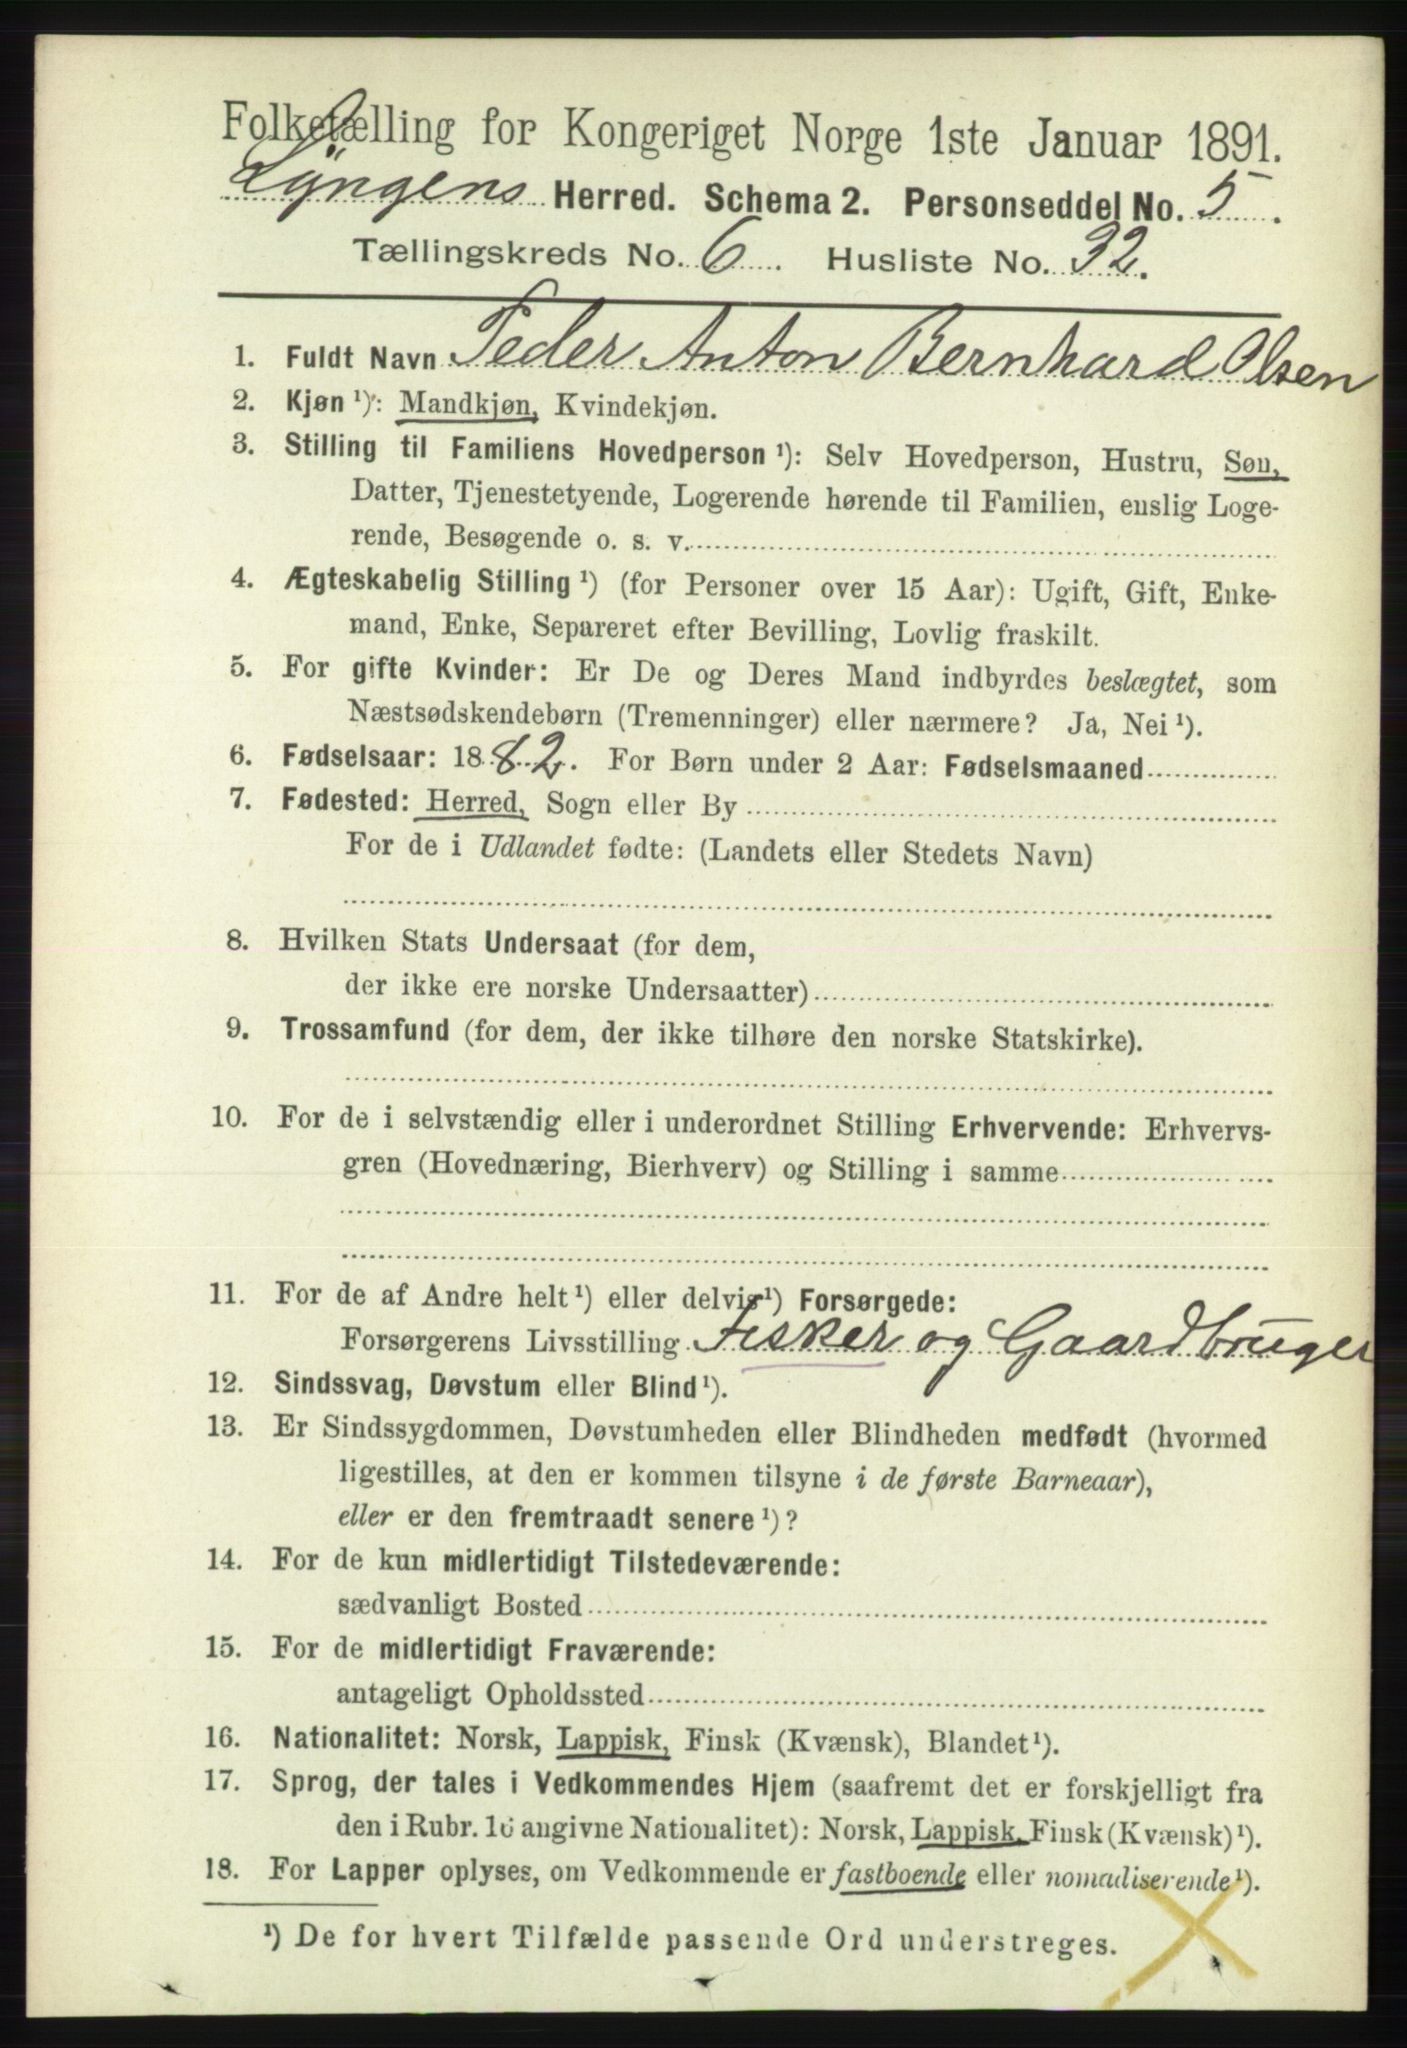 Folketælling for Kongeriget Norge 1ste Januar 1891.
Lyngens Herred. Schema 2. Personseddel No. 5.
Tællingskreds No. 6. Husliste No. 32.
1. Fuldt Navn Peder Anton Bernhard Olsen
2. Kjøn ¹): Mandkjøn, Kvindekjøn.
3. Stilling til Familiens Hovedperson ¹): Selv Hovedperson, Hustru, Søn,
Datter, Tjenestetyende, Logerende hørende til Familien, enslig Loge-
rende, Besøgende o. s. v.
4. Ægteskabelig Stilling ¹) (for Personer over 15 Aar): Ugift, Gift, Enke-
mand, Enke, Separeret efter Bevilling, Lovlig fraskilt.
5. For gifte Kvinder: Er De og Deres Mand indbyrdes beslægtet, som
Næstsødskendebørn (Tremenninger) eller nærmere? Ja, Nei ¹).
6. Fødselsaar: 1882. For Børn under 2 Aar: Fødselsmaaned
7. Fødested: Herred, Sogn eller By
For de i Udlandet fødte: (Landets eller Stedets Navn)
8. Hvilken Stats Undersaat (for dem,
der ikke ere norske Undersaatter)
9. Trossamfund (for dem, der ikke tilhøre den norske Statskirke).
10. For de i selvstændig eller i underordnet Stilling Erhvervende: Erhvervs-
gren (Hovednæring, Bierhverv) og Stilling i samme
11. For de af Andre helt ¹) eller delvis ¹) Forsørgede:
Forsørgerens Livsstilling Fisker og Gaardbruger
12. Sindssvag, Døvstum eller Blind ¹).
13. Er Sindssygdommen, Døvstumheden eller Blindheden medfødt (hvormed
ligestilles, at den er kommen tilsyne i de første Barneaar),
eller er den fremtraadt senere ¹)?
14. For de kun midlertidigt Tilstedeværende:
sædvanligt Bosted
15. For de midlertidigt Fraværende:
antageligt Opholdssted
16. Nationalitet: Norsk, Lappisk, Finsk (Kvænsk), Blandet ¹).
17. Sprog, der tales i Vedkommendes Hjem (saafremt det er forskjelligt fra
den i Rubr. 16 angivne Nationalitet): Norsk, Lappisk, Finsk (Kvænsk) ¹).
18. For Lapper oplyses, om Vedkommende er fastboende eller nomadiserende ¹).
¹) De for hvert Tilfælde passende Ord understreges.